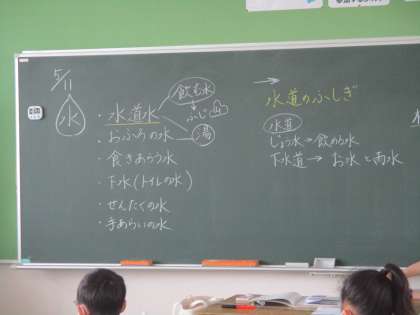 5/11
水
・水道水
飲む水
ふじ山
・おふろの水
湯
・食きあらう水
・下水(トイレの水)
・せんたくの水
・手あらいの水
→
水道のふしぎ
水道
じょう水→飲める水
下水道→お水と雨水